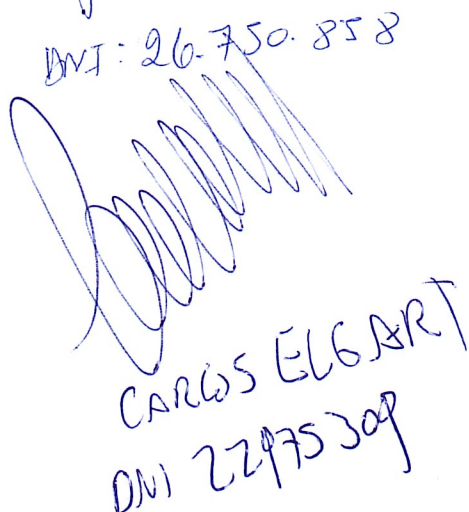 DNI: 26.750.858
CARLOS ELGART
DNI 22975309